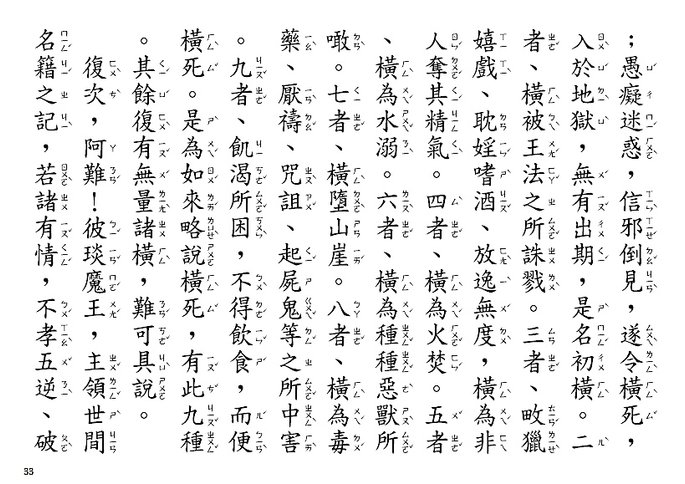 ；愚癡迷惑，信邪倒見，遂令橫死，
入於地獄，無有出期，是名初橫。二
者、橫被王法之所誅戮。三者、畋獵
嬉戲、耽婬嗜酒、放逸無度，橫為非
人奪其精氣。四者、橫為火焚。五者
、橫為水溺。六者、橫為種種惡獸所
噉。七者、橫墮山崖。八者、橫為毒
藥、厭禱、咒詛、起屍鬼等之所中害
。九者、飢渴所困，不得飲食，而便
橫死。是為如來略說橫死，有此九種
。其餘復有無量諸橫，難可具說。
復次，阿難！彼琰魔王，主領世間
名籍之記，若諸有情，不孝五逆、破
33